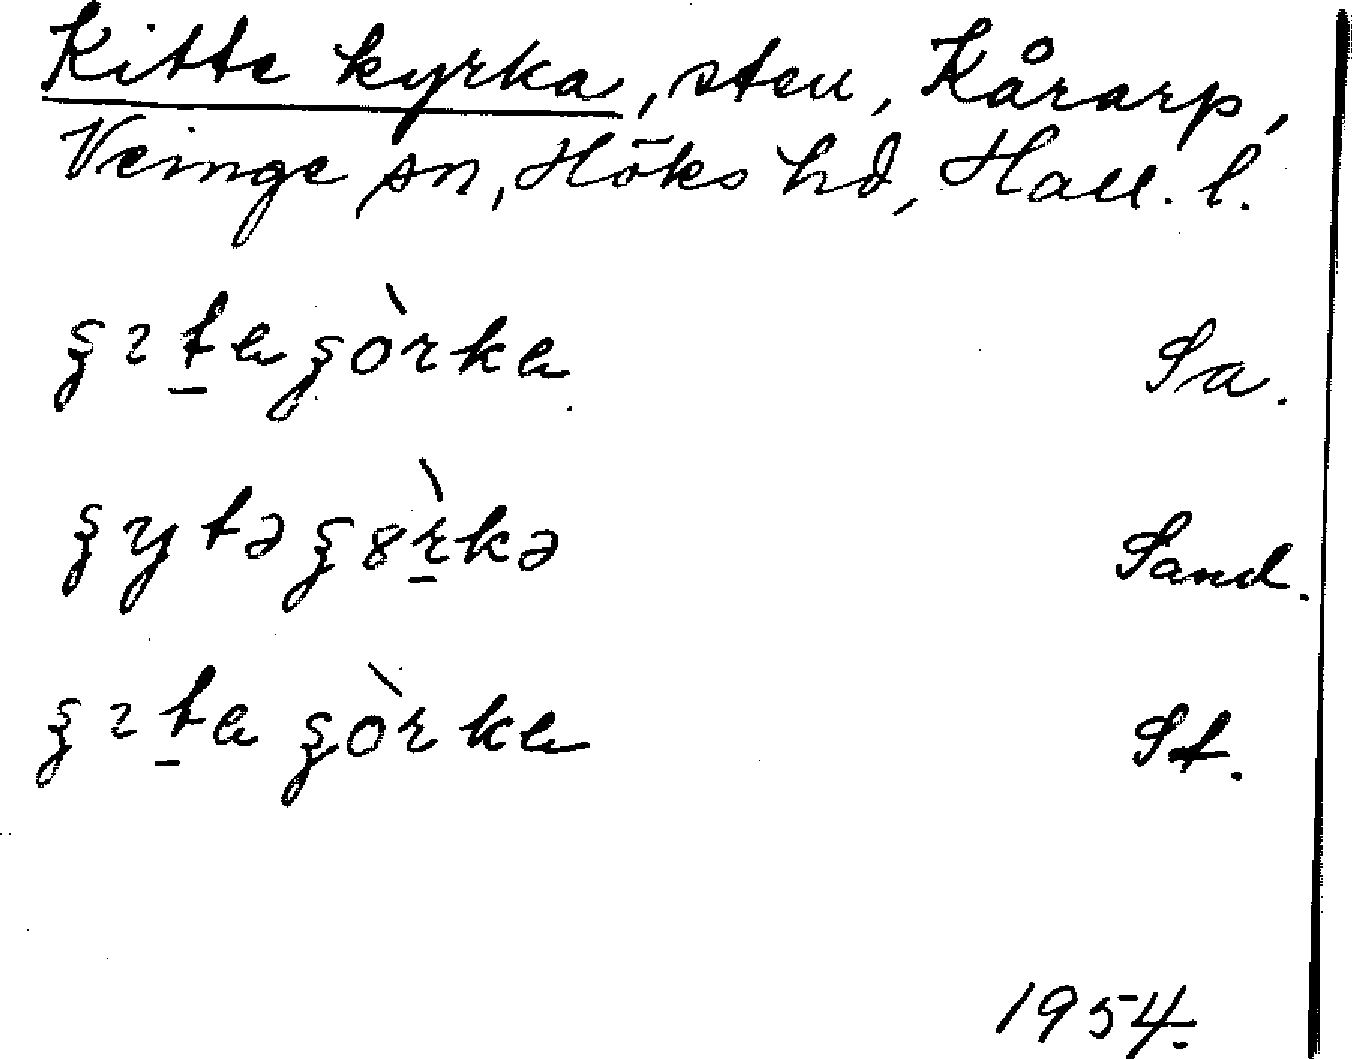 Kitte kyrka, sten, Kårarp,
Veinge sn, Höks hd, Hall. l.
ʂɩt̠aʂòrka Sa.
ʂytəʂ8̀r̠kə Sand.
ʂɩt̠a ʂòrka St.
1954.